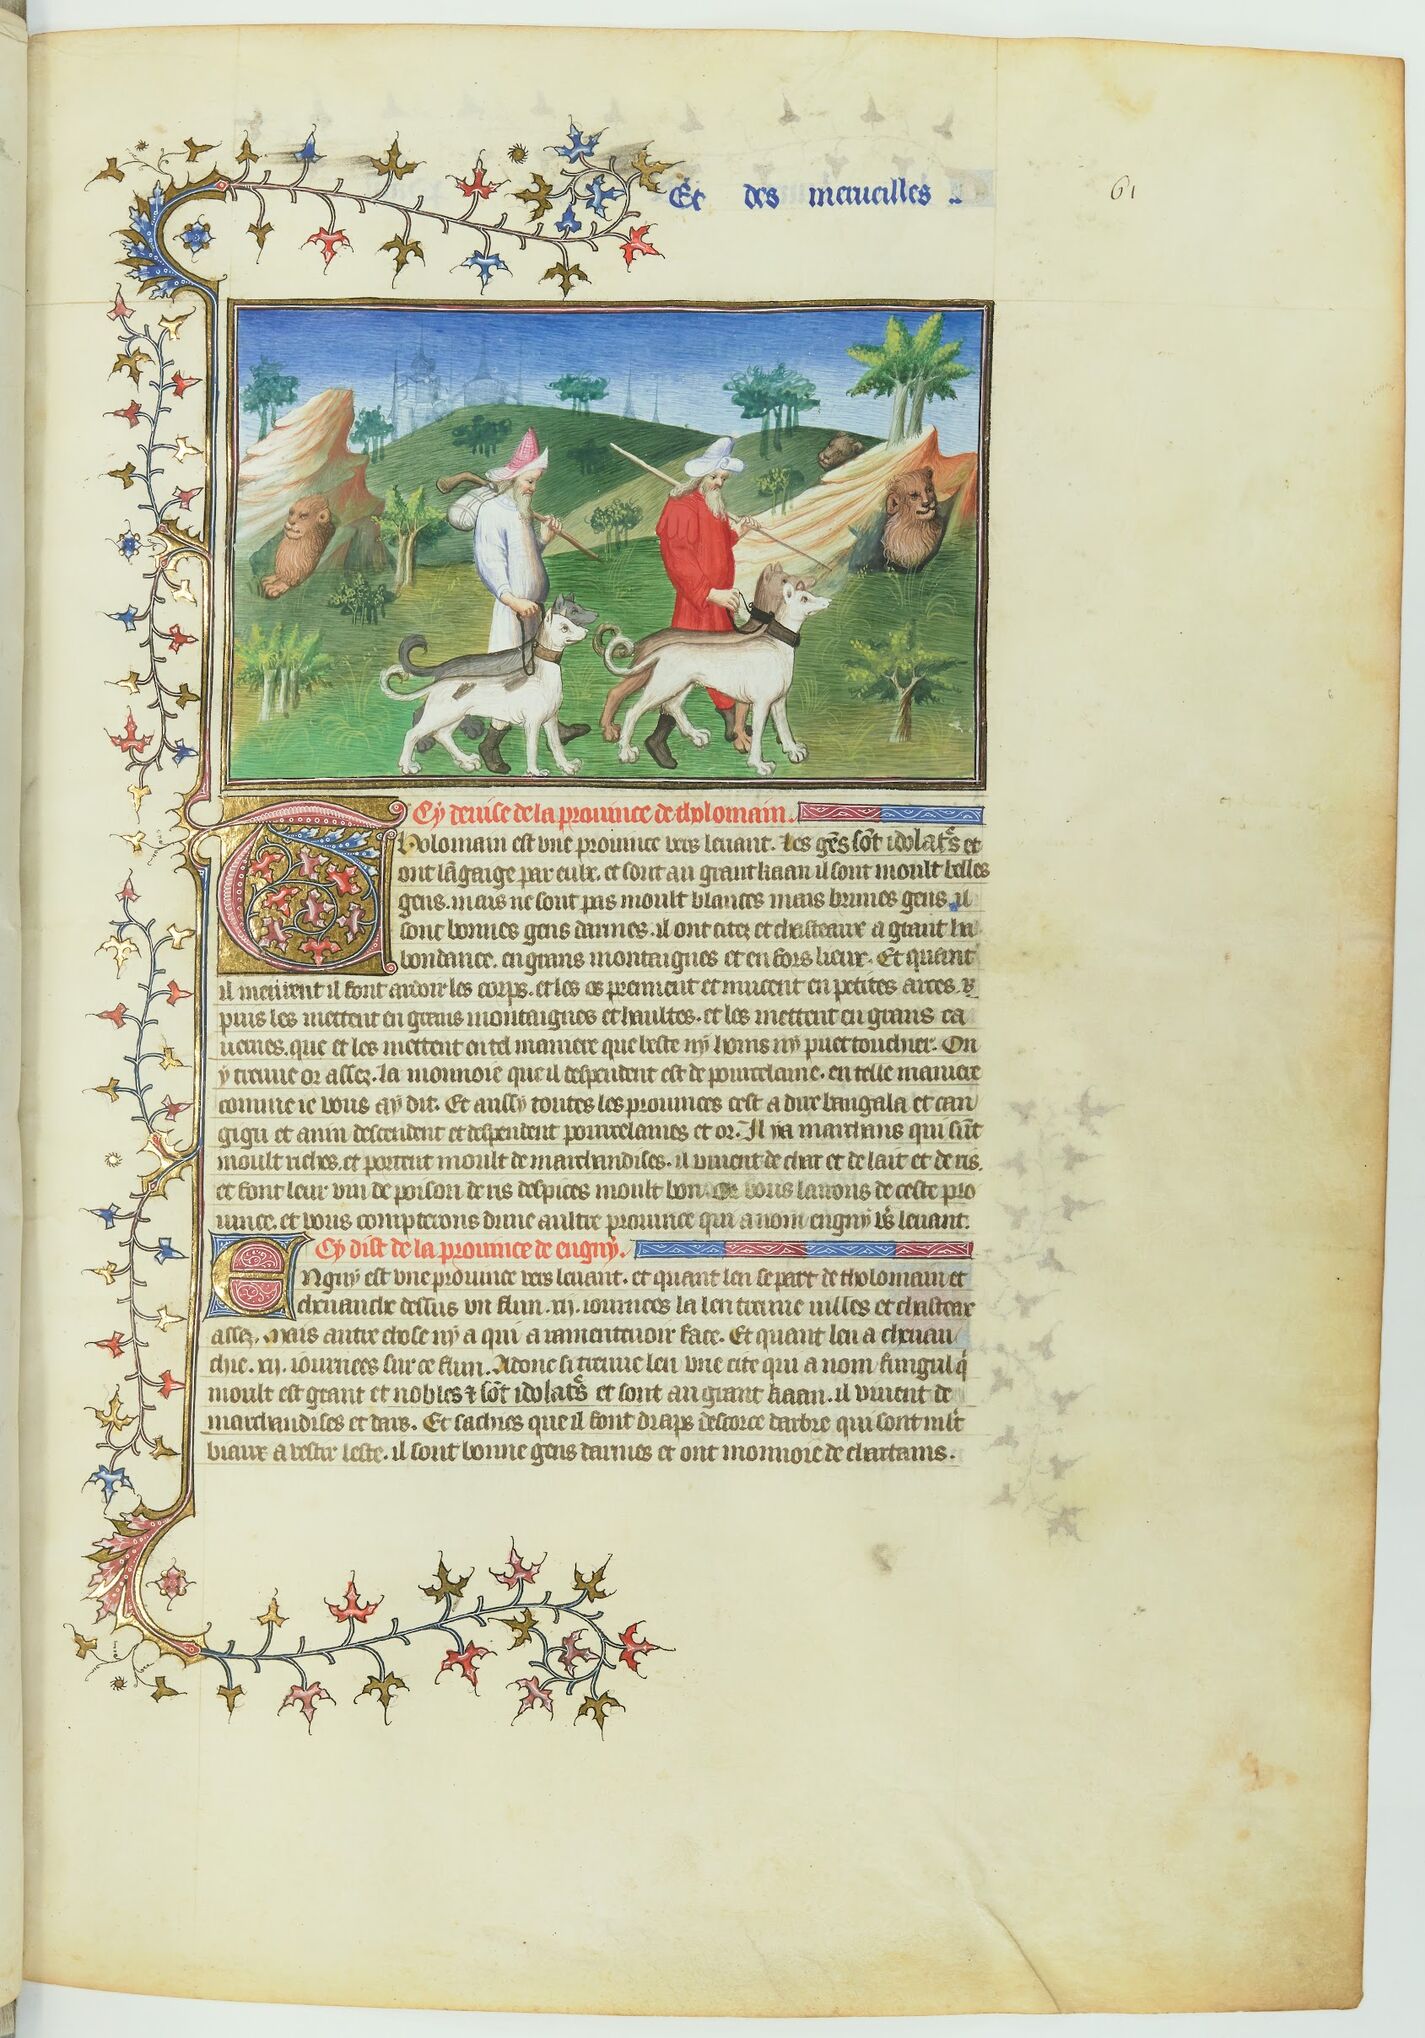 Et des merueilles
61
Cy deuise de la prouince de tholomain.
Tholomain est vne prouince vers leuant. Les gẽs sõt ydolatͬs et
ont lãgaige par eulx. et sont au grant kaan il sont moult belles
gens. mais ne sont pas moult blances mais brunes gens. il
sont bonnes gens darmes. il ont citez et chasteaux a grant ha
bondance. en grans montaignes et en fors lieux. Et quant
il meurent il font ardoir les corps. et les os prennent et mucent en petites arces. ⁊
puis les mettent en grans montaignes et haultes. et les mettent en grans ca
uernes. que et les mettent en tel maniere que beste ny homs ny puet touchier. On
y treuue or assez. la monnoie que il despendent est de pourcelaine. en telle maniere
comme ie vous ay dit. Et aussy toutes les prouinces cest a dire bangala et can
gigu et anin descendent et despendent pourcelaines et or. Il ya marchans qui sũt
moult riches. et portent moult de marchandises. il viuent de char et de lait et de ris.
et font leur vin de poison de ris despices moult bon. Or vous lairons de ceste pro
uince. et vous compterons dune aultre prouince qui a nom engny vs̃ leuant.
Cy dist de la prouince de engny.
Engny est vne prouince vers leuant. et quant len se part de tholomain et
cheuauche dessus vn flun .xij. iournees la len treuue uilles et chasteax
assez. Mais autre chose ny a qui a ramenteuoir face. Et quant len a cheuau
chie .xij. iournees sur ce flun. Adonc si treuue len vne cite qui a nom fungul q̇
moult est grant et nobles ⁊ sõt idolatͬs et sont au grant kaan. il viuent de
marchandises et dars. Et sachies que il font draps descorce darbre qui sont ml̃t
biaux a vestir leste. il sont bonne gens darmes et ont monnoie de chartains.